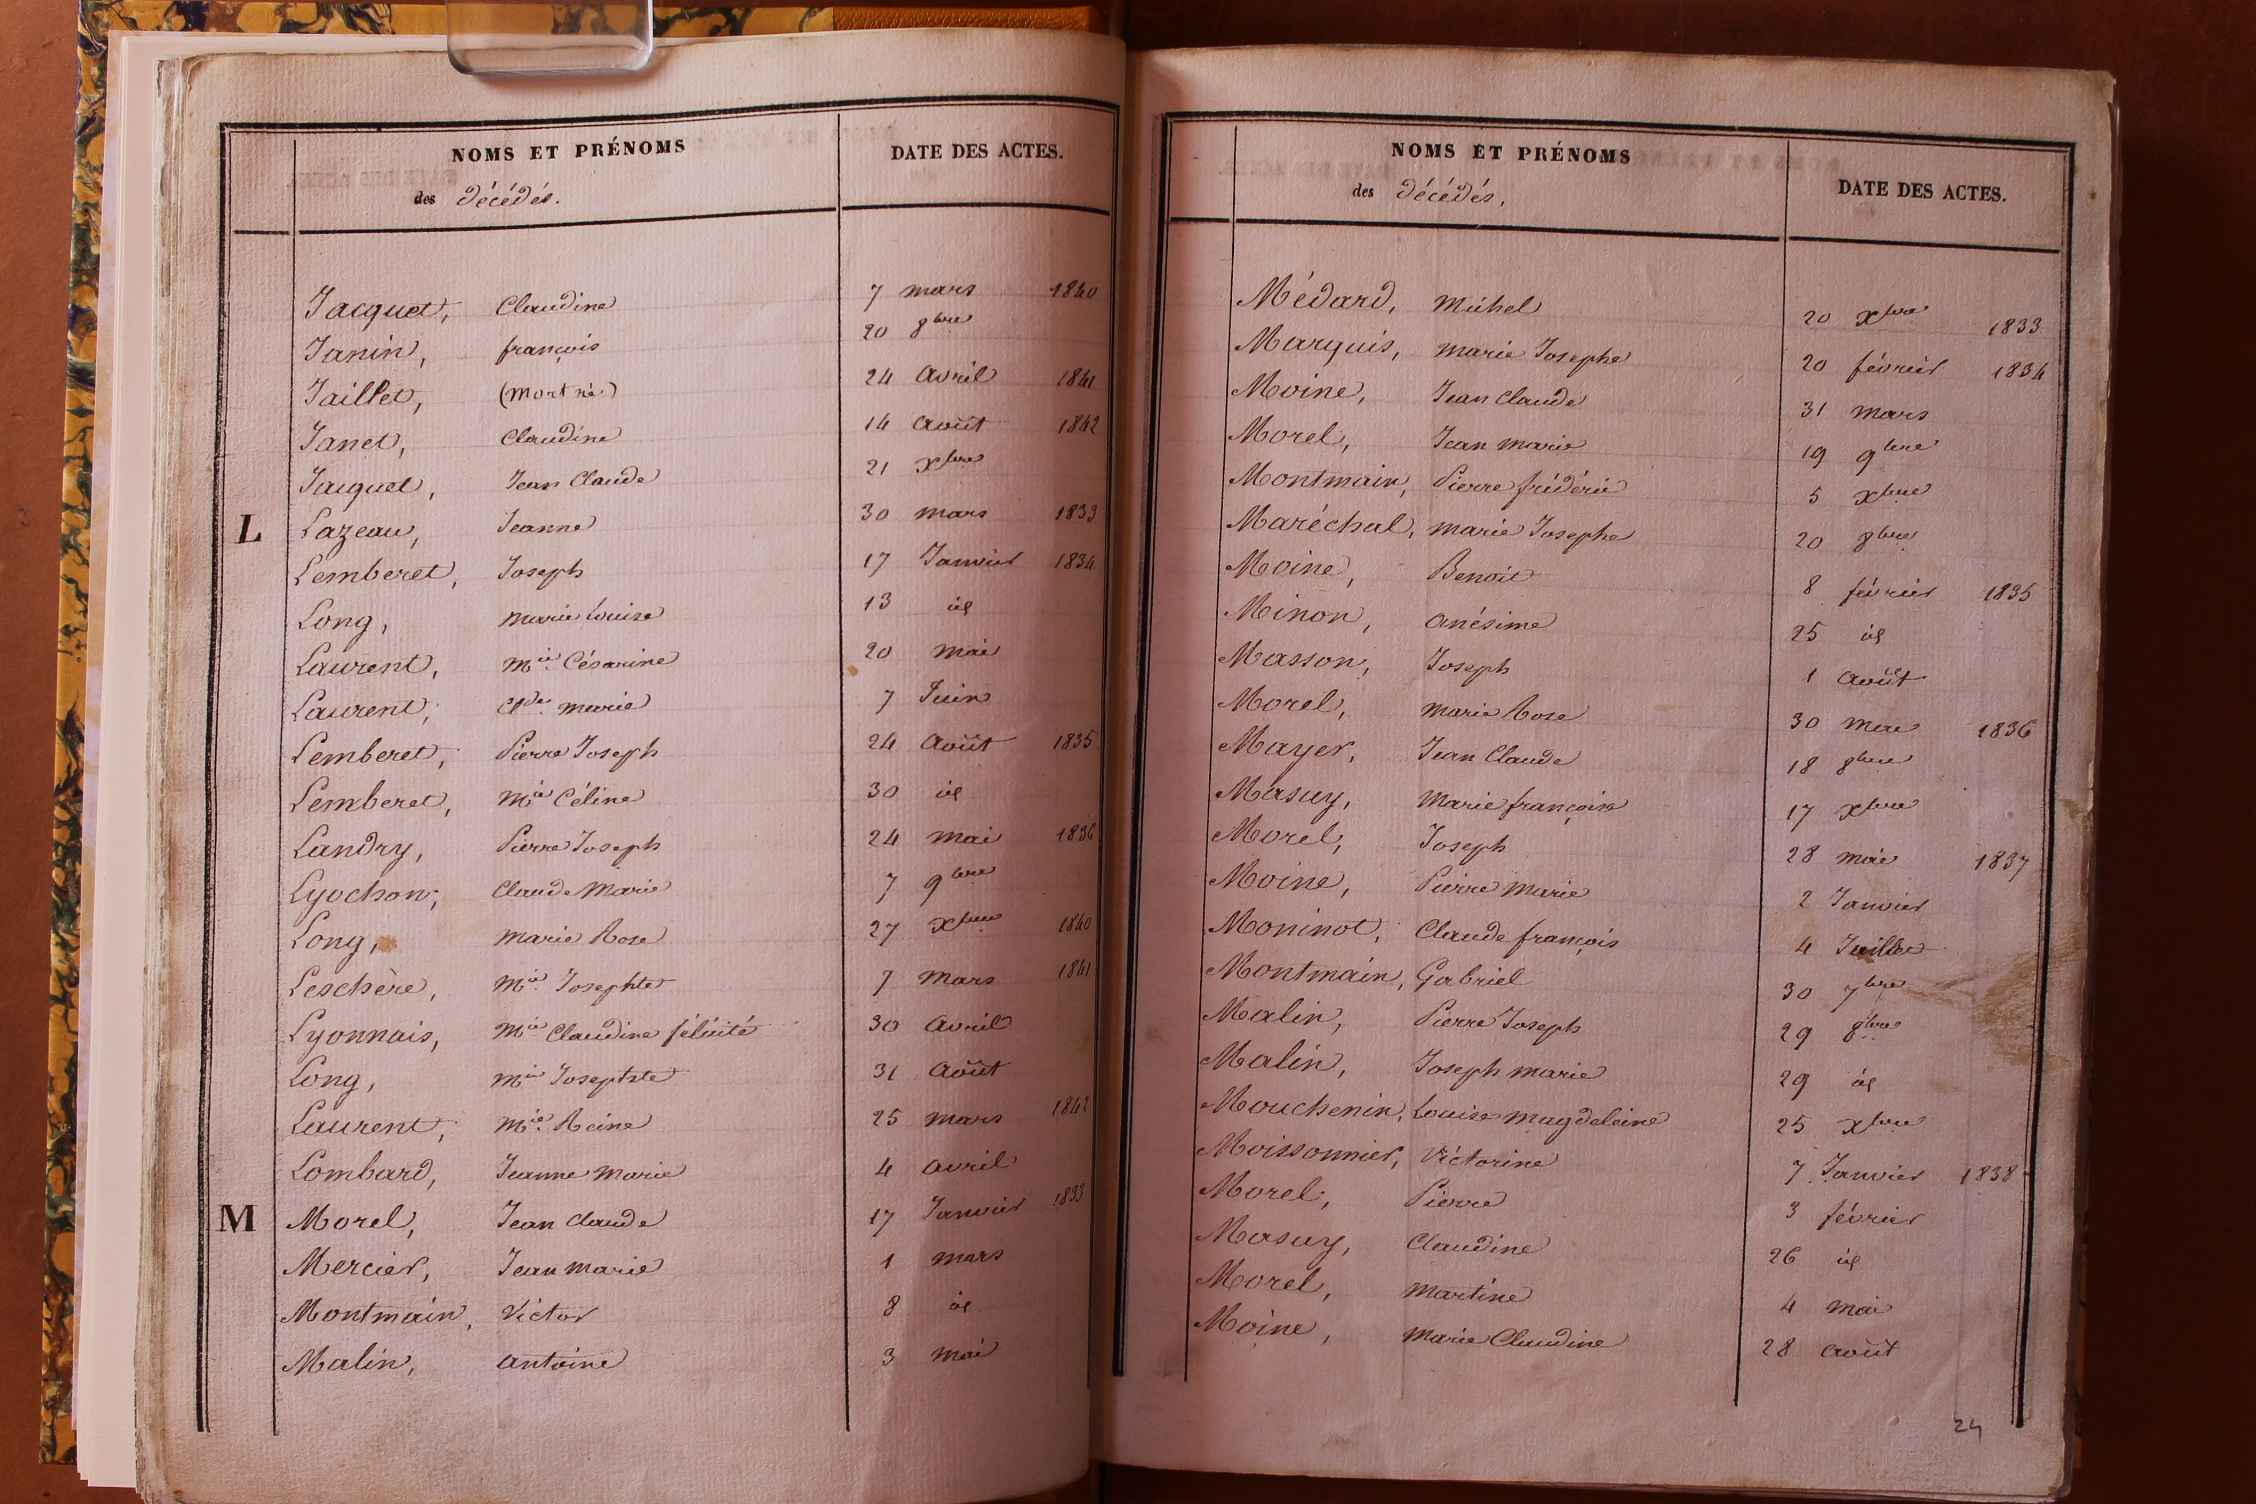 NOMS ET PRÉNOMS
des décédés.
DATE DES ACTES.
Jacquet, Claudine 7 mars 1840
Janin, françois 20 8bre
Jaillet, (mort né) 24 avril 1841
Janet, Claudine 14 août 1842
Jacquet, Jean Claude 21 Xbre
L Lazeau, Jeanne 30 mars 1833
Lemberet, Joseph 17 Janvier 1834
Long, marie Louise 13 id
Laurent, Mie Césarine 20 mai
Laurent, Cde marie 7 Juin
Lemberet, Pierre Joseph 24 août 1835
Lemberet, Mie Céline 30 id
Landry, Pierre Joseph 24 mai 1836
Lyochon, Claude Marie 7 9bre
Long, marie Rose 27 Xbre 1840
Leschère, Mie Josephte 7 mars 1841
Lyonnais, Mie Claudine félicité 30 avril
Long, Mie Josephte 31 août
Laurent, Mie Reine 25 mars 1842
Lombard, Jeanne Marie 4 avril
M Morel, Jean Claude 17 Janvier 1833
Mercier, Jean marie 1 mars
Montmain, Victor 8 id
Malin, antoine 3 mai
NOMS ET PRÉNOMS
des décédés.
DATE DES ACTES.
Médard, Michel 20 Xbre 1833
Marquis, marie Josephe 20 février 1834
Moine, Jean Claude 31 mars
Morel, Jean marie 19 9bre
Montmain, Pierre frédéric 5 Xbre
Maréchal, marie Josephe 20 8bre
Moine, Benoit 8 février 1835
Minon, anésime 25 id
Masson, Joseph 1 août
Morel, marie Rose 30 mai 1836
Mayer, Jean Claude 18 8bre
Masuy, Marie françoise 17 Xbre
Morel, Joseph 28 mai 1837
Moine, Pierre marie 2 Janvier
Moninot, Claude françois 4 Juillet
Montmain, Gabriel 30 7bre
Malin, Pierre Joseph 29 8bre
Malin, Joseph marie 29 id
Mouchenin, Louise magdeleine 25 Xbre
Moissonnier, Victorine 7 Janvier 1838
Morel, Pierre 3 février
Masuy, Claudine 26 id
Morel, martine 4 mai
Moine, Marie Claudine 28 août
24